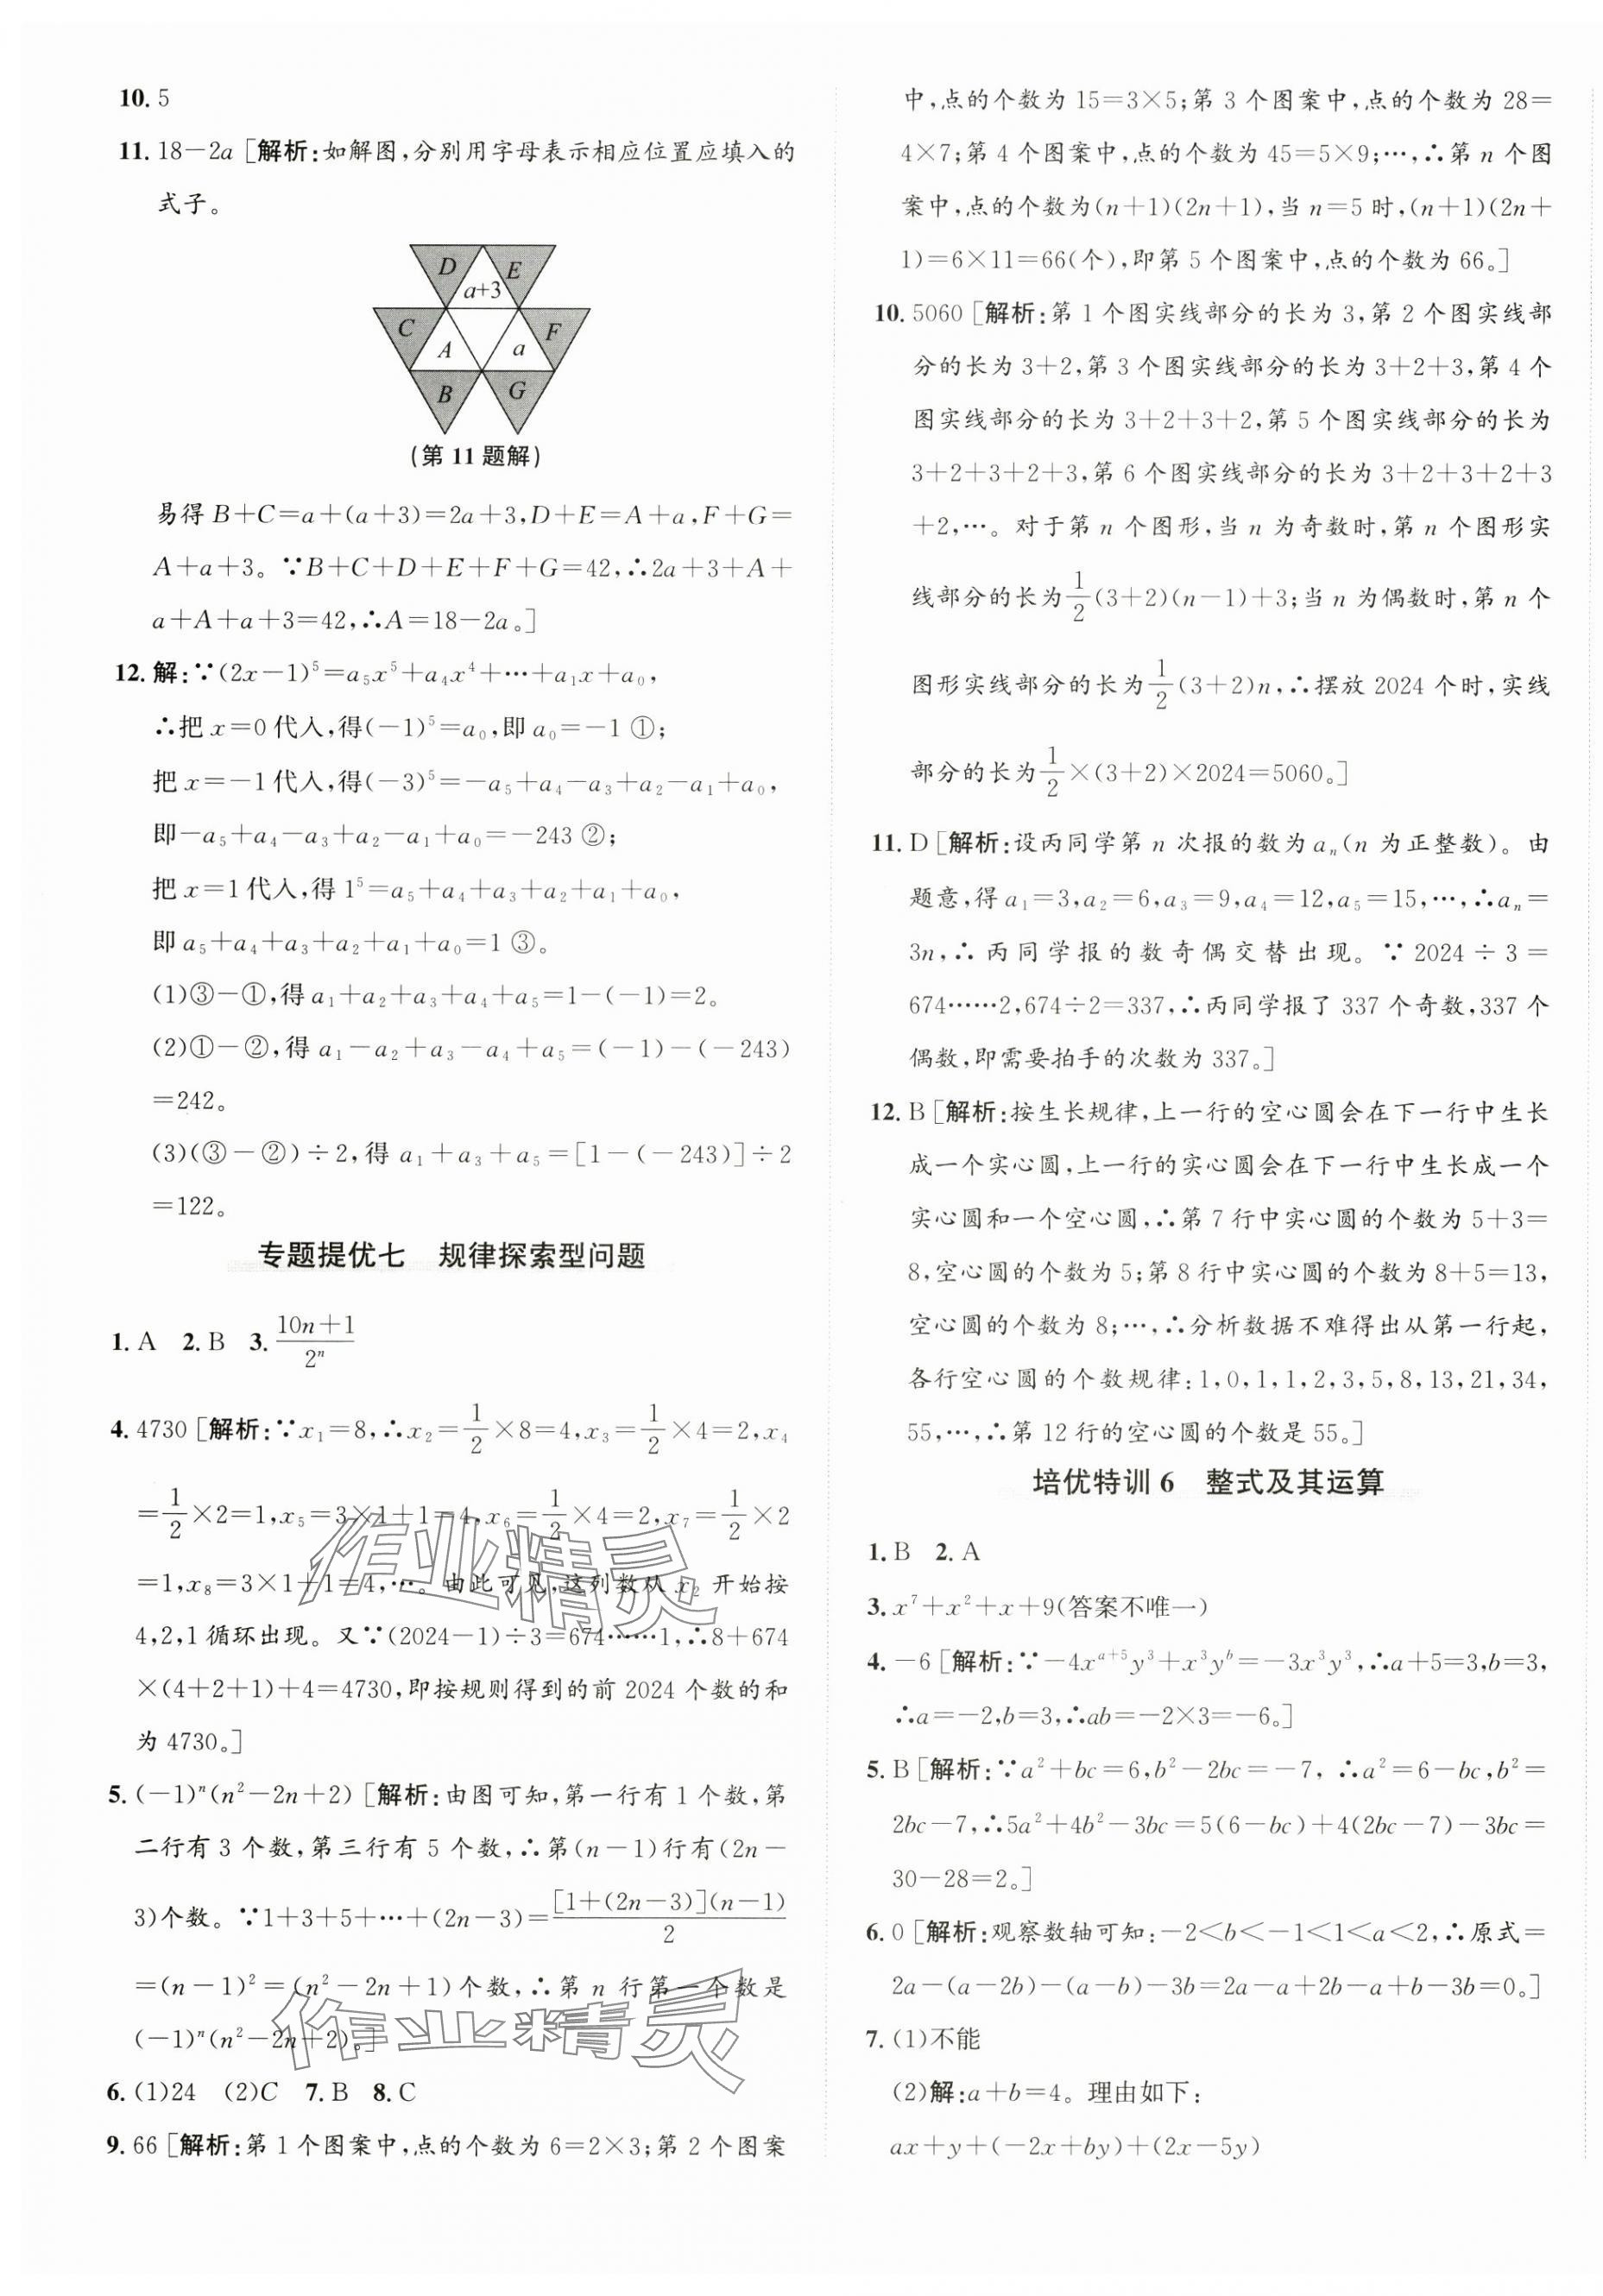 10. 5
11. 18－2a［解析:如解图,分别用字母表示相应位置应填入的
式子。
D
E
a+3
C
F
A
a
B
G
(第 11 题解)
易得 B＋C＝a＋(a＋3)＝2a＋3,D＋E＝A＋a,F＋G＝
A＋a＋3。∵B＋C＋D＋E＋F＋G＝42,∴2a＋3＋A＋
a＋A＋a＋3＝42,∴A＝18－2a。］
12. 解:∵(2x－1)⁵＝a₅x⁵＋a₄x⁴＋…＋a₁x＋a₀,
∴把 x＝0 代入,得(－1)⁵＝a₀,即 a₀＝－1 ①;
把 x＝－1 代入,得(－3)⁵＝－a₅＋a₄－a₃＋a₂－a₁＋a₀,
即－a₅＋a₄－a₃＋a₂－a₁＋a₀＝－243 ②;
把 x＝1 代入,得 1⁵＝a₅＋a₄＋a₃＋a₂＋a₁＋a₀,
即 a₅＋a₄＋a₃＋a₂＋a₁＋a₀＝1 ③。
(1)③－①,得 a₁＋a₂＋a₃＋a₄＋a₅＝1－(－1)＝2。
(2)①－②,得 a₁－a₂＋a₃－a₄＋a₅＝(－1)－(－243)
＝242。
(3)(③－②)÷2,得 a₁＋a₃＋a₅＝[1－(－243)]÷2
＝122。
专题提优七　规律探索型问题
1. A　2. B　3. (10n＋1)/2ⁿ
4. 4730［解析:∵x₁＝8,∴x₂＝1/2×8＝4,x₃＝1/2×4＝2,x₄
＝1/2×2＝1,x₅＝3×1＋1＝4,x₆＝1/2×4＝2,x₇＝1/2×2
＝1,x₈＝3×1＋1＝4,…。由此可见,这列数从 x₂ 开始按
4,2,1 循环出现。又∵(2024－1)÷3＝674……1,∴8＋674
×(4＋2＋1)＋4＝4730,即按规则得到的前 2024 个数的和
为 4730。］
5. (－1)ⁿ(n²－2n＋2)［解析:由图可知,第一行有 1 个数,第
二行有 3 个数,第三行有 5 个数,∴第(n－1)行有(2n－
3)个数。∵1＋3＋5＋…＋(2n－3)＝[1＋(2n－3)](n－1)/2
＝(n－1)²＝(n²－2n＋1)个数,∴第 n 行第一个数是
(－1)ⁿ(n²－2n＋2)。］
6. (1)24　(2)C　7. B　8. C
9. 66［解析:第 1 个图案中,点的个数为 6＝2×3;第 2 个图案
中,点的个数为 15＝3×5;第 3 个图案中,点的个数为 28＝
4×7;第 4 个图案中,点的个数为 45＝5×9;…,∴第 n 个图
案中,点的个数为(n＋1)(2n＋1),当 n＝5 时,(n＋1)(2n＋
1)＝6×11＝66(个),即第 5 个图案中,点的个数为 66。］
10. 5060［解析:第 1 个图实线部分的长为 3,第 2 个图实线部
分的长为 3＋2,第 3 个图实线部分的长为 3＋2＋3,第 4 个
图实线部分的长为 3＋2＋3＋2,第 5 个图实线部分的长为
3＋2＋3＋2＋3,第 6 个图实线部分的长为 3＋2＋3＋2＋3
＋2,…。对于第 n 个图形,当 n 为奇数时,第 n 个图形实
线部分的长为1/2(3＋2)(n－1)＋3;当 n 为偶数时,第 n 个
图形实线部分的长为1/2(3＋2)n,∴摆放 2024 个时,实线
部分的长为1/2×(3＋2)×2024＝5060。］
11. D［解析:设丙同学第 n 次报的数为 aₙ(n 为正整数)。由
题意,得 a₁＝3,a₂＝6,a₃＝9,a₄＝12,a₅＝15,…,∴aₙ＝
3n,∴丙同学报的数奇偶交替出现。∵2024÷3＝
674……2,674÷2＝337,∴丙同学报了 337 个奇数,337 个
偶数,即需要拍手的次数为 337。］
12. B［解析:按生长规律,上一行的空心圆会在下一行中生长
成一个实心圆,上一行的实心圆会在下一行中生长成一个
实心圆和一个空心圆,∴第 7 行中实心圆的个数为 5＋3＝
8,空心圆的个数为 5;第 8 行中实心圆的个数为 8＋5＝13,
空心圆的个数为 8;…,∴分析数据不难得出从第一行起,
各行空心圆的个数规律:1,0,1,1,2,3,5,8,13,21,34,
55,…,∴第 12 行的空心圆的个数是 55。］
培优特训 6　整式及其运算
1. B　2. A
3. x⁷＋x²＋x＋9(答案不唯一)
4. －6［解析:∵－4xᵃ⁺⁵y³＋x³yᵇ＝－3x³y³,∴a＋5＝3,b＝3,
∴a＝－2,b＝3,∴ab＝－2×3＝－6。］
5. B［解析:∵a²＋bc＝6,b²－2bc＝－7,∴a²＝6－bc,b²＝
2bc－7,∴5a²＋4b²－3bc＝5(6－bc)＋4(2bc－7)－3bc＝
30－28＝2。］
6. 0［解析:观察数轴可知:－2＜b＜－1＜1＜a＜2,∴原式＝
2a－(a－2b)－(a－b)－3b＝2a－a＋2b－a＋b－3b＝0。］
7. (1)不能
(2)解:a＋b＝4。理由如下:
ax＋y＋(－2x＋by)＋(2x－5y)
作业精灵
作业精灵